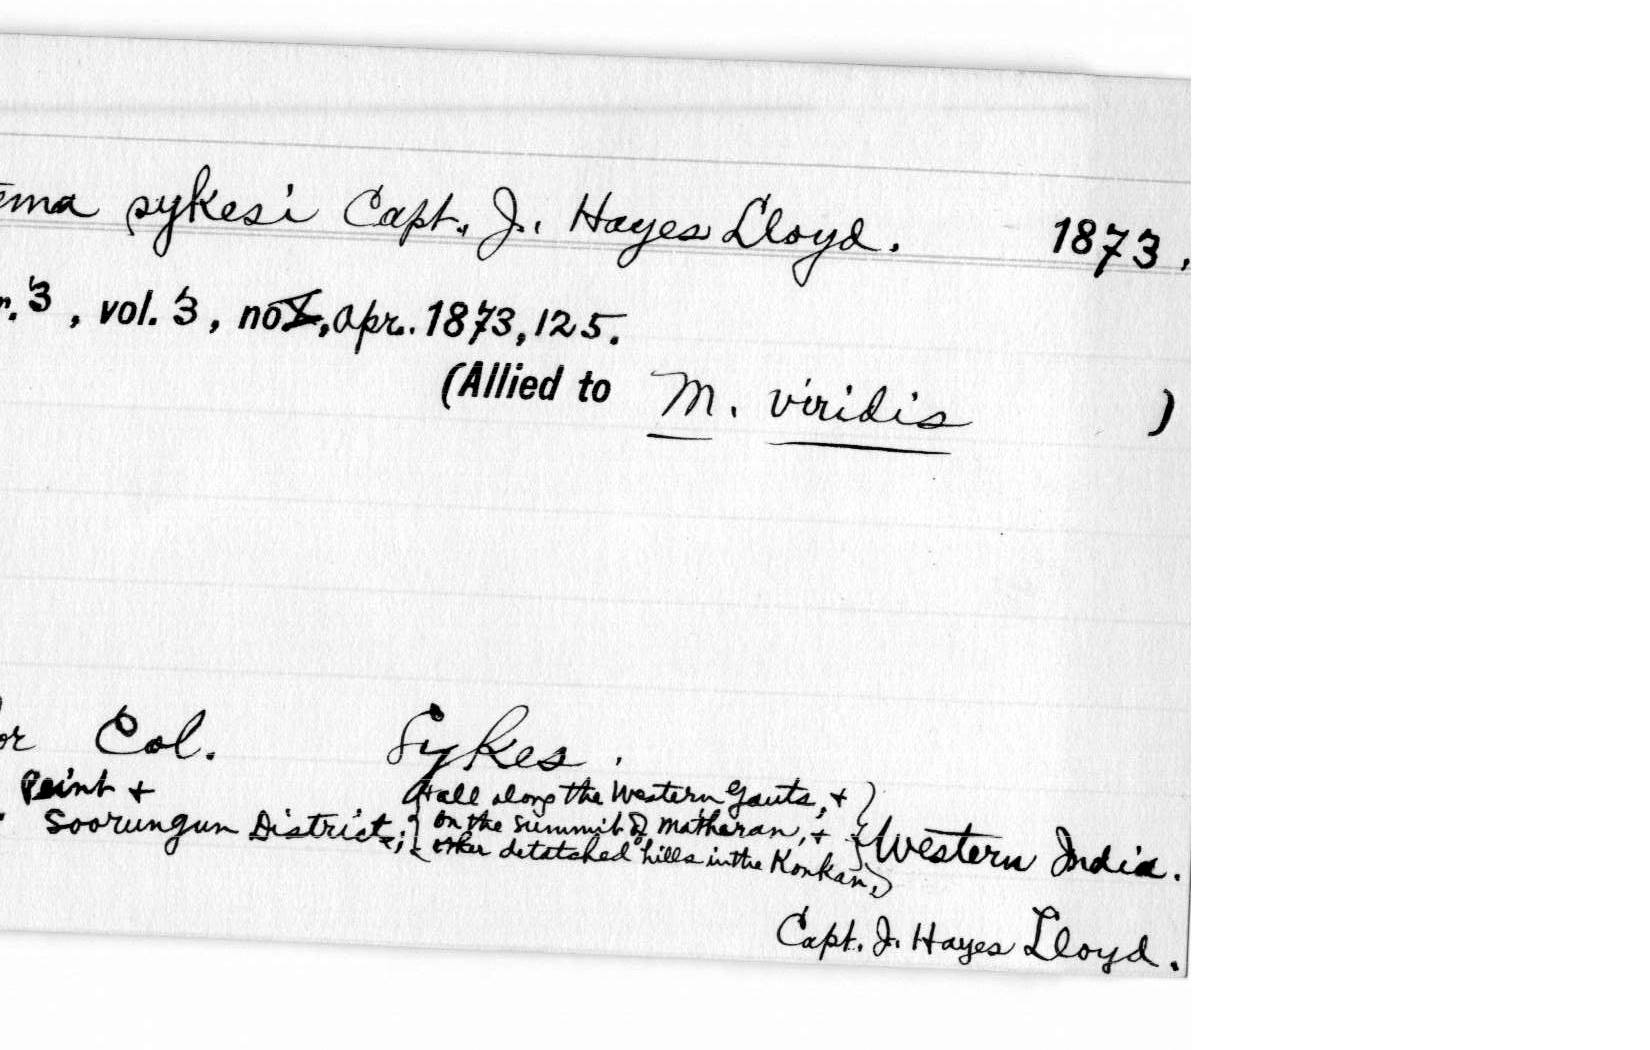 ema sykesi Capt. J. Hayes Lloyd. 1873.
r. 3, vol. 3, no, Apr. 1873, 125.
(Allied to M. viridis )
or Col. Sykes.
Peint +
Soorungun District;
+ all along the Western Gauts, +
on the summit of Matheran, +
other detatched hills in the Konkan,
Western India.
Capt. J. Hayes Lloyd.